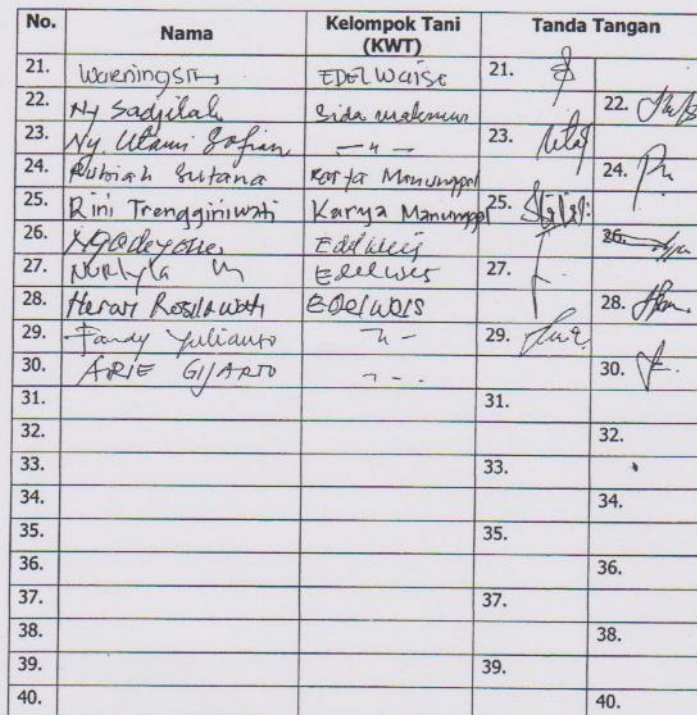 No. Nama Kelompok Tani (KWT) Tanda Tangan
21. EDELWaise 21.
22. Ny Sadjilah Sida makmur 22.
23. Ny. Utami Sofian — " — 23.
24. Rubiah Sutana Karya Manunggal 24.
25. Rini Trengginiwati Karya Manunggal 25.
26. Edelweis 26.
27. Edelweis 27.
28. Herari Rosilawati EDelwais 28.
29. Fandy Yulianto 29.
30. ARIE GIJARTO 30.
31. 31.
32. 32.
33. 33.
34. 34.
35. 35.
36. 36.
37. 37.
38. 38.
39. 39.
40. 40.